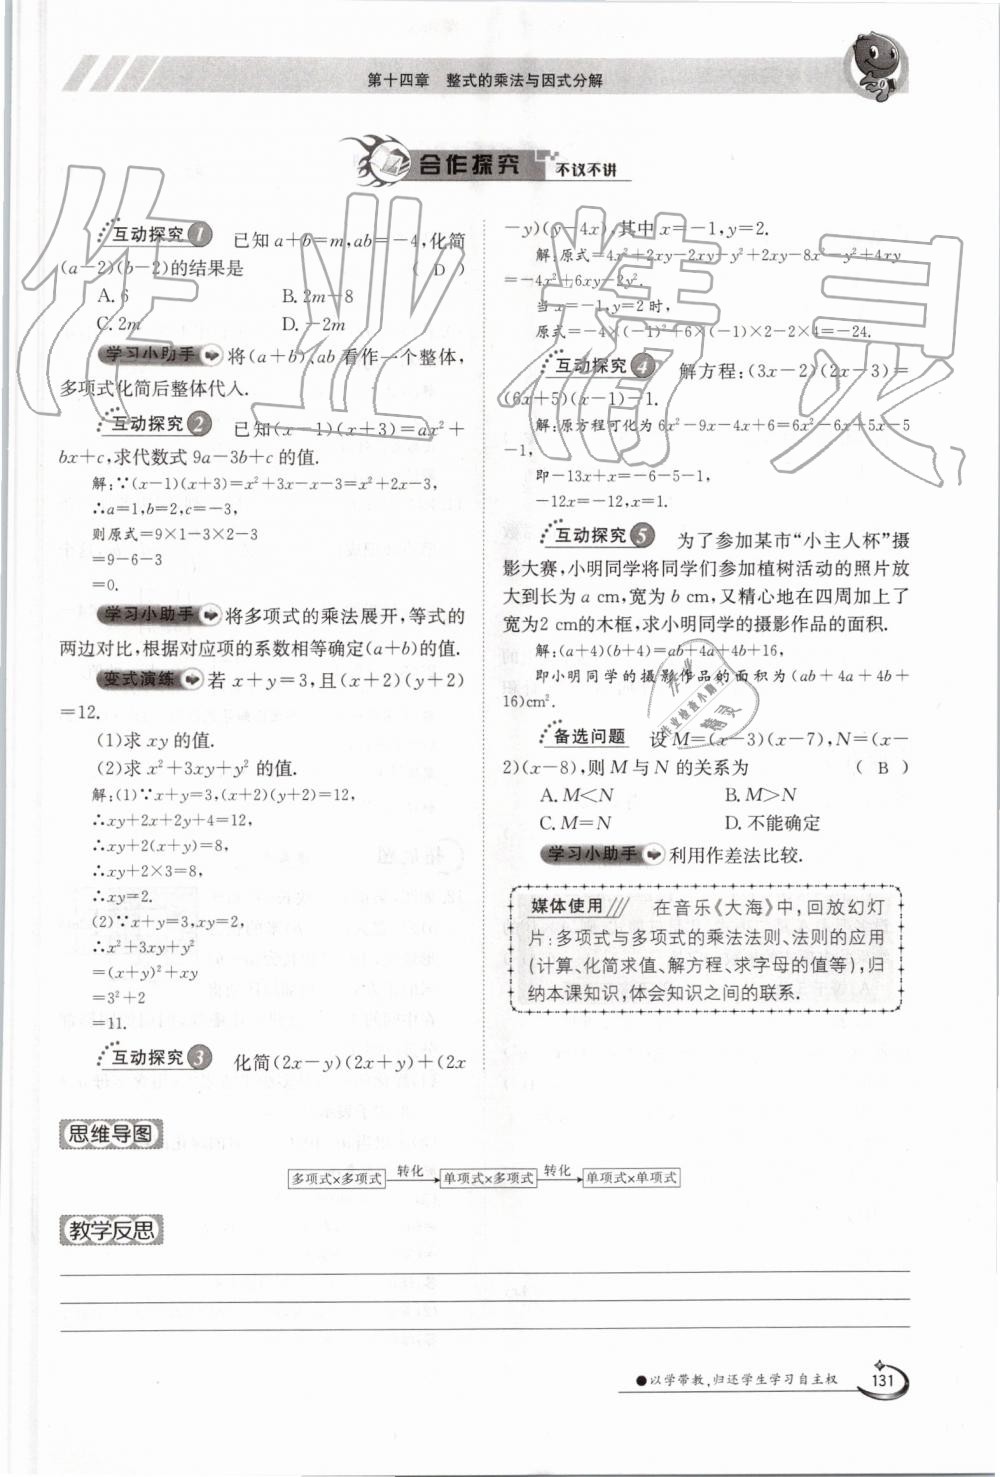 第十四章 整式的乘法与因式分解
合作探究 不议不讲
互动探究1 已知a+b=m,ab=-4,化简
(a-2)(b-2)的结果是 ( D )
A. 6 B. 2m-8
C. 2m D. -2m
学习小助手 将(a+b)、ab看作一个整体,
多项式化简后整体代入.
互动探究2 已知(x-1)(x+3)=ax²+
bx+c,求代数式9a-3b+c的值.
解:∵(x-1)(x+3)=x²+3x-x-3=x²+2x-3,
∴a=1,b=2,c=-3,
则原式=9×1-3×2-3
=9-6-3
=0.
学习小助手 将多项式的乘法展开,等式的
两边对比,根据对应项的系数相等确定(a+b)的值.
变式演练 若x+y=3,且(x+2)(y+2)
=12.
(1)求xy的值.
(2)求x²+3xy+y²的值.
解:(1)∵x+y=3,(x+2)(y+2)=12,
∴xy+2x+2y+4=12,
∴xy+2(x+y)=8,
∴xy+2×3=8,
∴xy=2.
(2)∵x+y=3,xy=2,
∴x²+3xy+y²
=(x+y)²+xy
=3²+2
=11.
互动探究3 化简(2x-y)(2x+y)+(2x
-y)(y-4x),其中x=-1,y=2.
解:原式=4x²+2xy-2xy-y²+2xy-8x²-y²+4xy
=-4x²+6xy-2y².
当x=-1,y=2时,
原式=-4×(-1)²+6×(-1)×2-2×4=-24.
互动探究4 解方程:(3x-2)(2x-3)=
(6x+5)(x-1)-1.
解:原方程可化为6x²-9x-4x+6=6x²-6x+5x-5
-1,
即-13x+x=-6-5-1,
-12x=-12,x=1.
互动探究5 为了参加某市“小主人杯”摄
影大赛,小明同学将同学们参加植树活动的照片放
大到长为a cm,宽为b cm,又精心地在四周加上了
宽为2 cm的木框,求小明同学的摄影作品的面积.
解:(a+4)(b+4)=ab+4a+4b+16,
即小明同学的摄影作品的面积为(ab+4a+4b+
16)cm².
备选问题 设M=(x-3)(x-7),N=(x-
2)(x-8),则M与N的关系为 ( B )
A. M<N B. M>N
C. M=N D. 不能确定
学习小助手 利用作差法比较.
媒体使用 在音乐《大海》中,回放幻灯
片:多项式与多项式的乘法法则、法则的应用
(计算、化简求值、解方程、求字母的值等),归
纳本课知识,体会知识之间的联系.
思维导图
多项式×多项式 转化 单项式×多项式 转化 单项式×单项式
教学反思
●以学带教,归还学生学习自主权 131
作业精灵